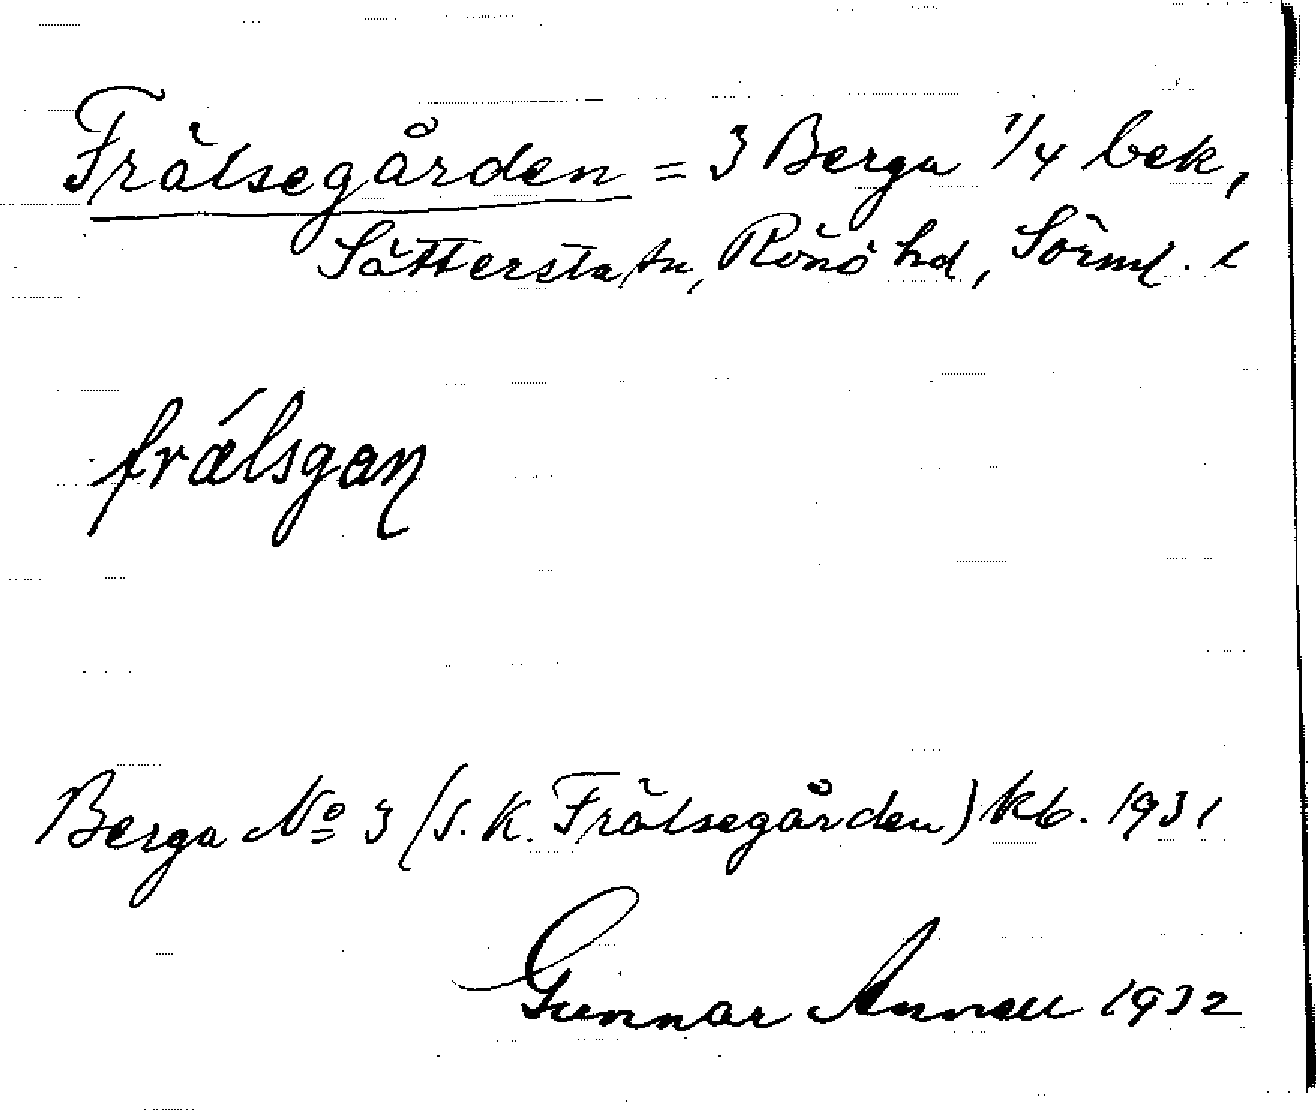 Frälsegården = 3 Berga 1/4 bek,
Sättersta sn, Rönö hd, Sörml. l
frálsgan
Berga No 3 (s.k. Frälsegården) kb. 1931
Gunnar Annell 1932